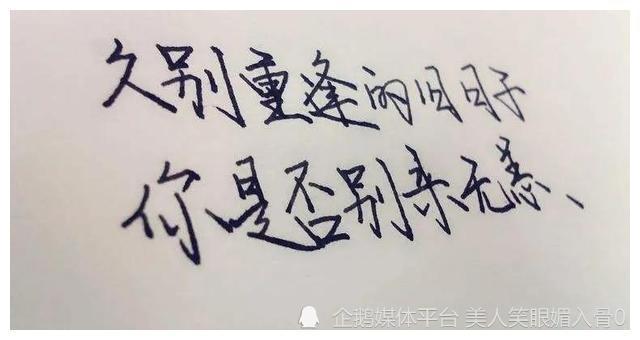 久别重逢的旧日子
你是否别来无恙、
企鹅媒体平台 美人笑眼媚入骨0